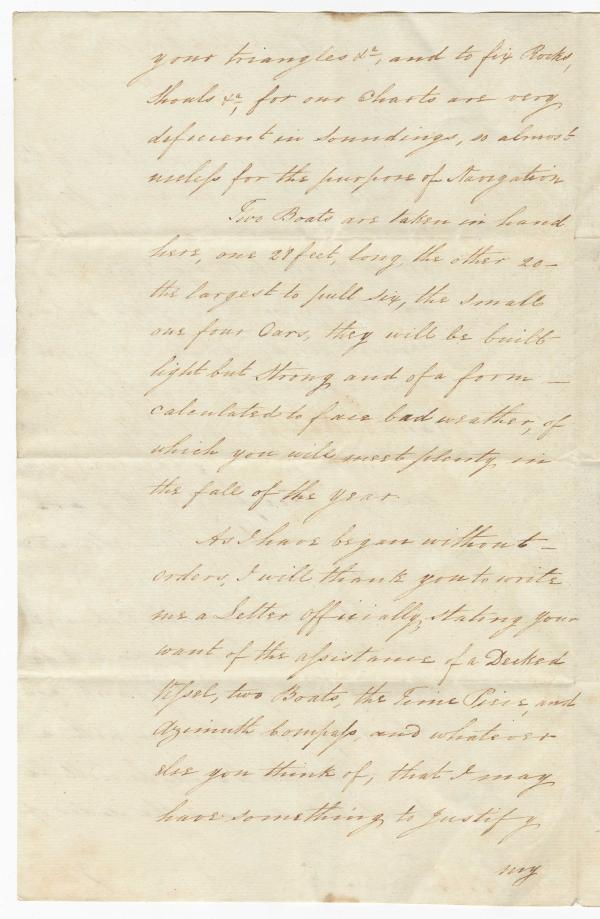 your triangles &c, and to fix Rocks,
Shoals &c, for our Charts are very
deficient in soundings, so almost
useless for the purpose of Navigation
Two Boats are taken in hand
here, one 28 feet, long, the other 20 –
the largest to pull six, the small
one four Oars, they will be built
light but strong and of a form –
calculated to face bad weather, of
which you will meet plenty in
the fall of the year.
As I have began without –
orders, I will thank you to write
me a Letter officially, stating your
want of the assistance of a Decked
Vessel, two Boats, the Time Piece, and
Azimuth Compass, and whatever
else you think of, that I may
have something to Justify
my